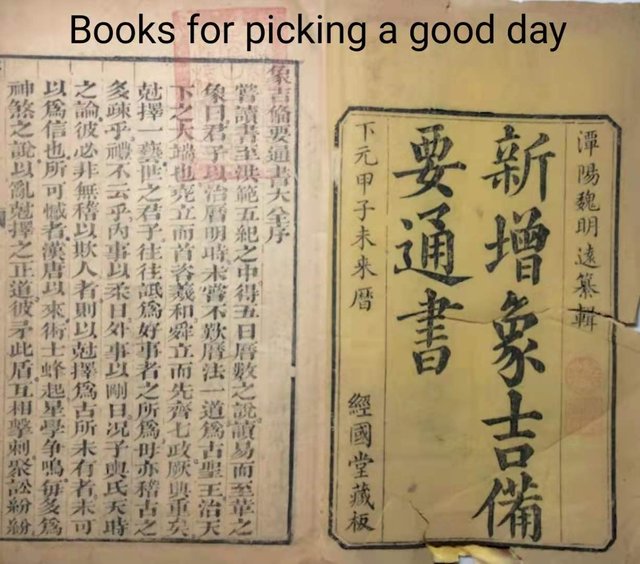 Books for picking a good day
潭陽魏明遠纂輯
新增象吉備
要通書
下元甲子未来曆
經國堂藏板
象吉備要通書大全序
嘗讀書至洪範五紀之中得五曰曆數之說讀易而至革之
象曰君子以治曆明時未嘗不歎曆法一道為古聖王治天
下之大端也堯立而首咨羲和舜立而先齊七政厥典重矣
尅擇一藝世之君子往往詆為好事者之所為毋亦稽古之
多疎乎禮不云乎內事以柔日外事以剛日况子輿氏天時
之論彼必非無稽以欺人者則以尅擇為古所未有者未可
以為信也所可憾者漢唐以來術士蜂起星學争鳴每多為
神煞之說以亂尅擇之正道彼矛此盾互相擊刺聚訟紛紛